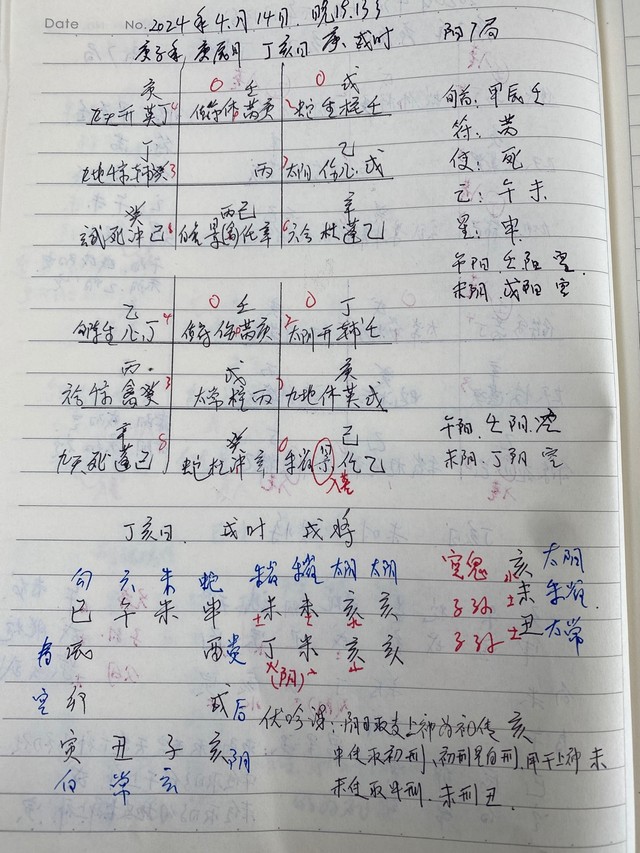 Date No. 2024年4月14日 晚19:13
庚辰月 丁亥日 庚戌时 阴7局
庚 0 壬 0 戊
九天开英丁4 值符休芮庚 2蛇生柱壬
丁 乙
九地 3 丙 太阴伤心戊
癸 丙己 辛
死冲己8 景 任辛 六合杜蓬乙
旬首:甲辰壬
符:芮
使:死
乙:午未
星:申
午阳 壬阳空
未阴 戊阳空
乙 0 壬 0 丁
生心丁4 值符伤芮庚 2太阴开辅壬
丙 戊 庚
惊禽癸3 太常柱丙 九地休英戊
辛 癸 己
九天死蓬己8 蛇杜冲辛 朱雀景任乙
入墓
午阳 壬阴空
未阴 丁阴空
丁亥日 戌时 戌将
勾 六 朱 蛇 朱雀 朱雀 太阴 太阴
巳 午 未 申 未 未 亥 亥
青 辰 酉贵 丁 未 亥 亥
火(阴)土 水
空 卯 戌后
寅 丑 子 亥阴
白 常 玄
官鬼 水亥 太阴
子孙 土未 朱雀
子孙 土丑 太常
伏吟课:阴日取支上神为初传 亥
中传取初刑,初刑是自刑,用干上神 未
末传取中刑,未刑丑